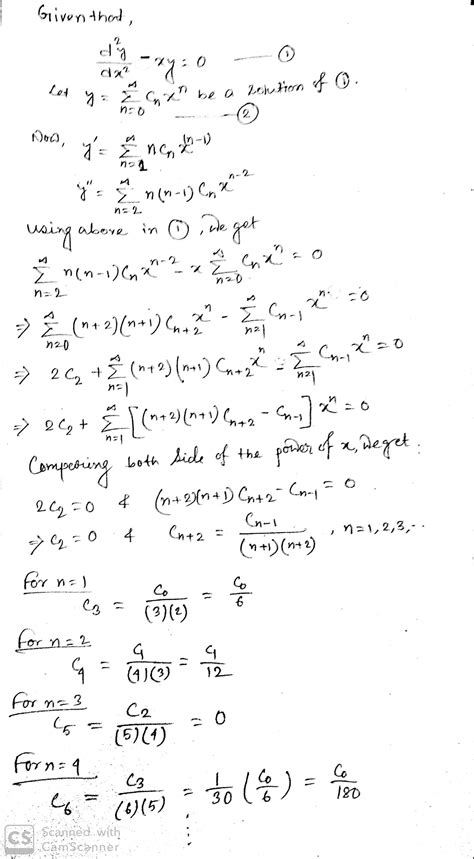 Given that,
d²y/dx² - xy = 0 — ①
Let y = ∞Σn=0 Cₙxⁿ be a solution of ①.
— ②
Now, y' = ∞Σn=1 nCₙx^(n-1)
y'' = ∞Σn=2 n(n-1)Cₙx^n-2
using above in ①, we get
∞Σn=2 n(n-1)Cₙx^n-2 - x ∞Σn=0 Cₙxⁿ = 0
⇒ ∞Σn=0 (n+2)(n+1)Cₙ₊₂xⁿ - ∞Σn=1 Cₙ₋₁xⁿ = 0
⇒ 2C₂ + ∞Σn=1 (n+2)(n+1)Cₙ₊₂xⁿ - ∞Σn=1 Cₙ₋₁xⁿ = 0
⇒ 2C₂ + ∞Σn=1 [(n+2)(n+1)Cₙ₊₂ - Cₙ₋₁]xⁿ = 0
Compearing both side of the power of x, we get.
2C₂ = 0 & (n+2)(n+1)Cₙ₊₂ - Cₙ₋₁ = 0
⇒ C₂ = 0 & Cₙ₊₂ = Cₙ₋₁/(n+1)(n+2), n=1,2,3,..
For n=1
C₃ = C₀/(3)(2) = C₀/6
For n=2
C₄ = C₁/(4)(3) = C₁/12
For n=3
C₅ = C₂/(5)(4) = 0
For n=4
C₆ = C₃/(6)(5) = 1/30 (C₀/6) = C₀/180
CS Scanned with
CamScanner